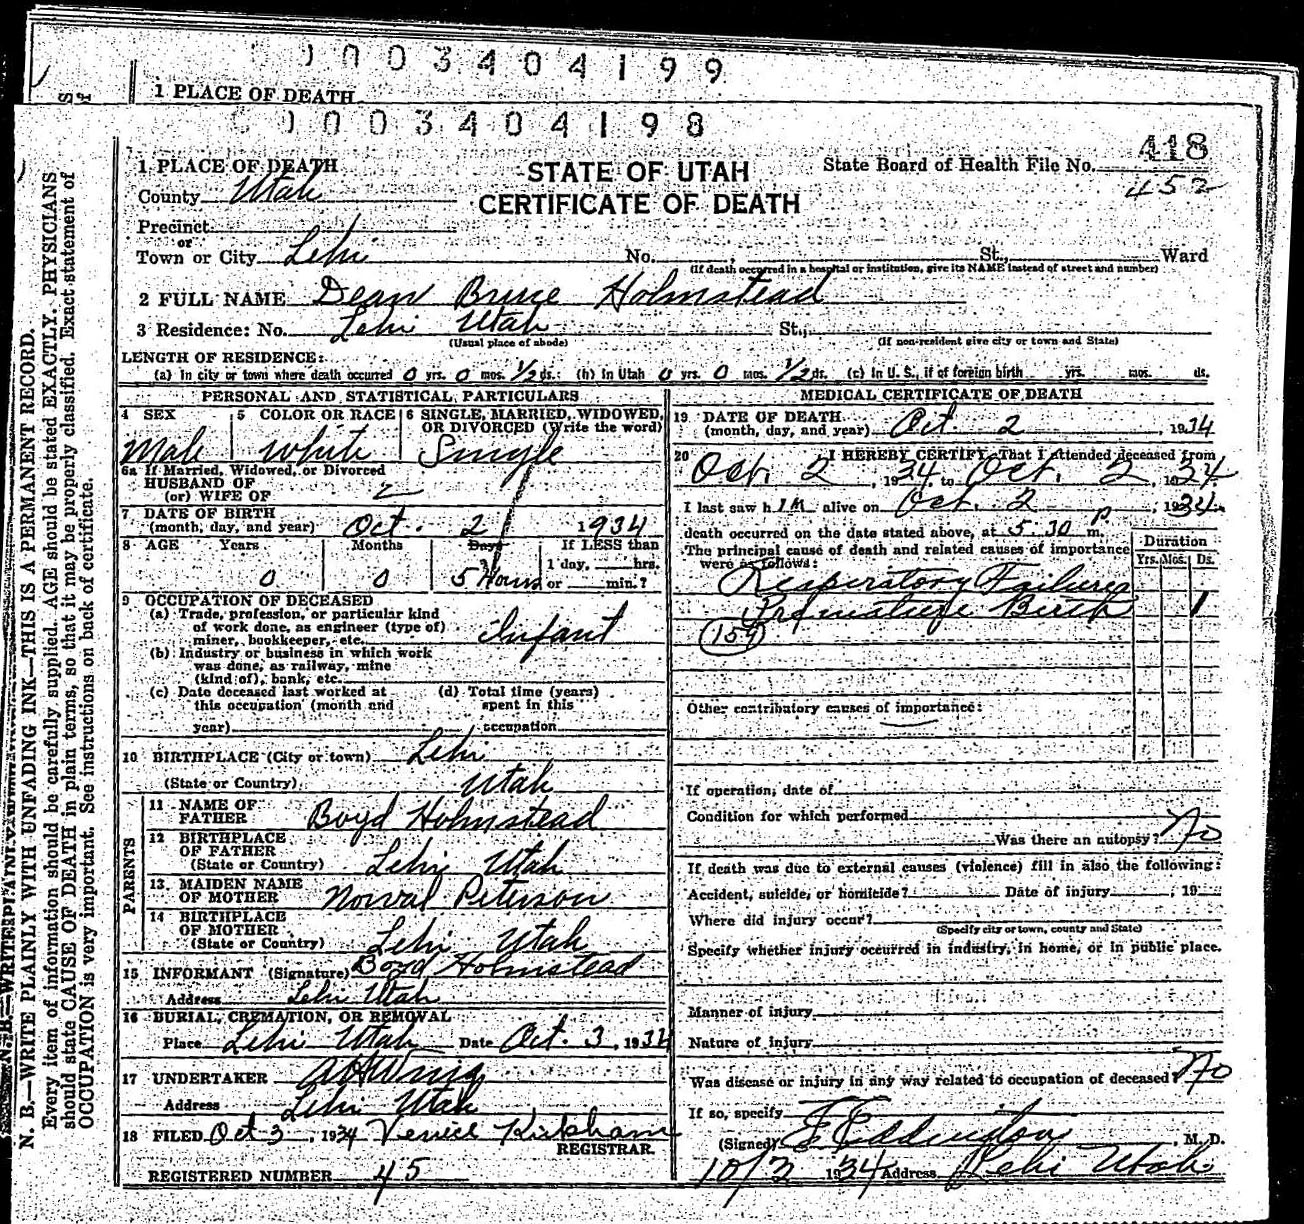 0003404199
1 PLACE OF DEATH
0003404198
1 PLACE OF DEATH
STATE OF UTAH
CERTIFICATE OF DEATH
State Board of Health File No. 418
452
County Utah
Precinct
or
Town or City Lehi No. St., Ward
(If death occurred in a hospital or institution, give its NAME instead of street and number)
2 FULL NAME Dean Bruce Holmstead
3 Residence: No. Lehi Utah St.,
(Usual place of abode) (If non-resident give city or town and State)
LENGTH OF RESIDENCE:
(a) In city or town where death occurred 0 yrs. 0 mos. 1/2 ds.: (b) In Utah 0 yrs. 0 mos. 1/2 ds. (c) In U. S., if of foreign birth yrs. mos. ds.
PERSONAL AND STATISTICAL PARTICULARS
4 SEX 5 COLOR OR RACE 6 SINGLE, MARRIED, WIDOWED, OR DIVORCED (Write the word)
Male White Single
6a If Married, Widowed, or Divorced
HUSBAND OF
(or) WIFE OF
7 DATE OF BIRTH
(month, day, and year) Oct. 2 1934
8 AGE Years Months Days If LESS than
1 day, hrs.
0 0 5 Hours or min.?
9 OCCUPATION OF DECEASED
(a) Trade, profession, or particular kind
of work done, as engineer (type of)
miner, bookkeeper, etc. Infant
(b) Industry or business in which work
was done, as railway, mine
(kind of), bank, etc.
(c) Date deceased last worked at
this occupation (month and
year)
(d) Total time (years)
spent in this
occupation
10 BIRTHPLACE (City or town) Lehi
(State or Country) Utah
PARENTS
11 NAME OF
FATHER Boyd Holmstead
12 BIRTHPLACE
OF FATHER
(State or Country) Lehi Utah
13 MAIDEN NAME
OF MOTHER Norval Peterson
14 BIRTHPLACE
OF MOTHER
(State or Country) Lehi Utah
15 INFORMANT (Signature) Boyd Holmstead
Address Lehi Utah
16 BURIAL, CREMATION, OR REMOVAL
Place Lehi Utah Date Oct. 3, 1934
17 UNDERTAKER
Address Lehi Utah
18 FILED Oct 3, 1934 Venice Kirkham
REGISTRAR.
REGISTERED NUMBER 45
MEDICAL CERTIFICATE OF DEATH
19 DATE OF DEATH
(month, day, and year) Oct. 2, 1934
20 I HEREBY CERTIFY, That I attended deceased from
Oct. 2, 1934. to Oct. 2, 1934.
I last saw h im alive on Oct. 2, 1934.
death occurred on the date stated above, at 5.30 p m.
The principal cause of death and related causes of importance
were as follows:
Duration
Yrs. Mos. Ds.
Respiratory Failure
Premature Birth 1
(159)
Other contributory causes of importance:
If operation, date of
Condition for which performed
Was there an autopsy? No
If death was due to external causes (violence) fill in also the following:
Accident, suicide, or homicide? Date of injury , 19
Where did injury occur?
(Specify city or town, county and State)
Specify whether injury occurred in industry, in home, or in public place.
Manner of injury
Nature of injury
Was disease or injury in any way related to occupation of deceased? No
If so, specify
(Signed) E Eddington, M. D.
10/2 1934 Address Lehi Utah
N. B.—WRITE PLAINLY WITH UNFADING INK—THIS IS A PERMANENT RECORD.
Every item of information should be carefully supplied. AGE should be stated EXACTLY. PHYSICIANS
should state CAUSE OF DEATH in plain terms, so that it may be properly classified. Exact statement of
OCCUPATION is very important. See instructions on back of certificate.